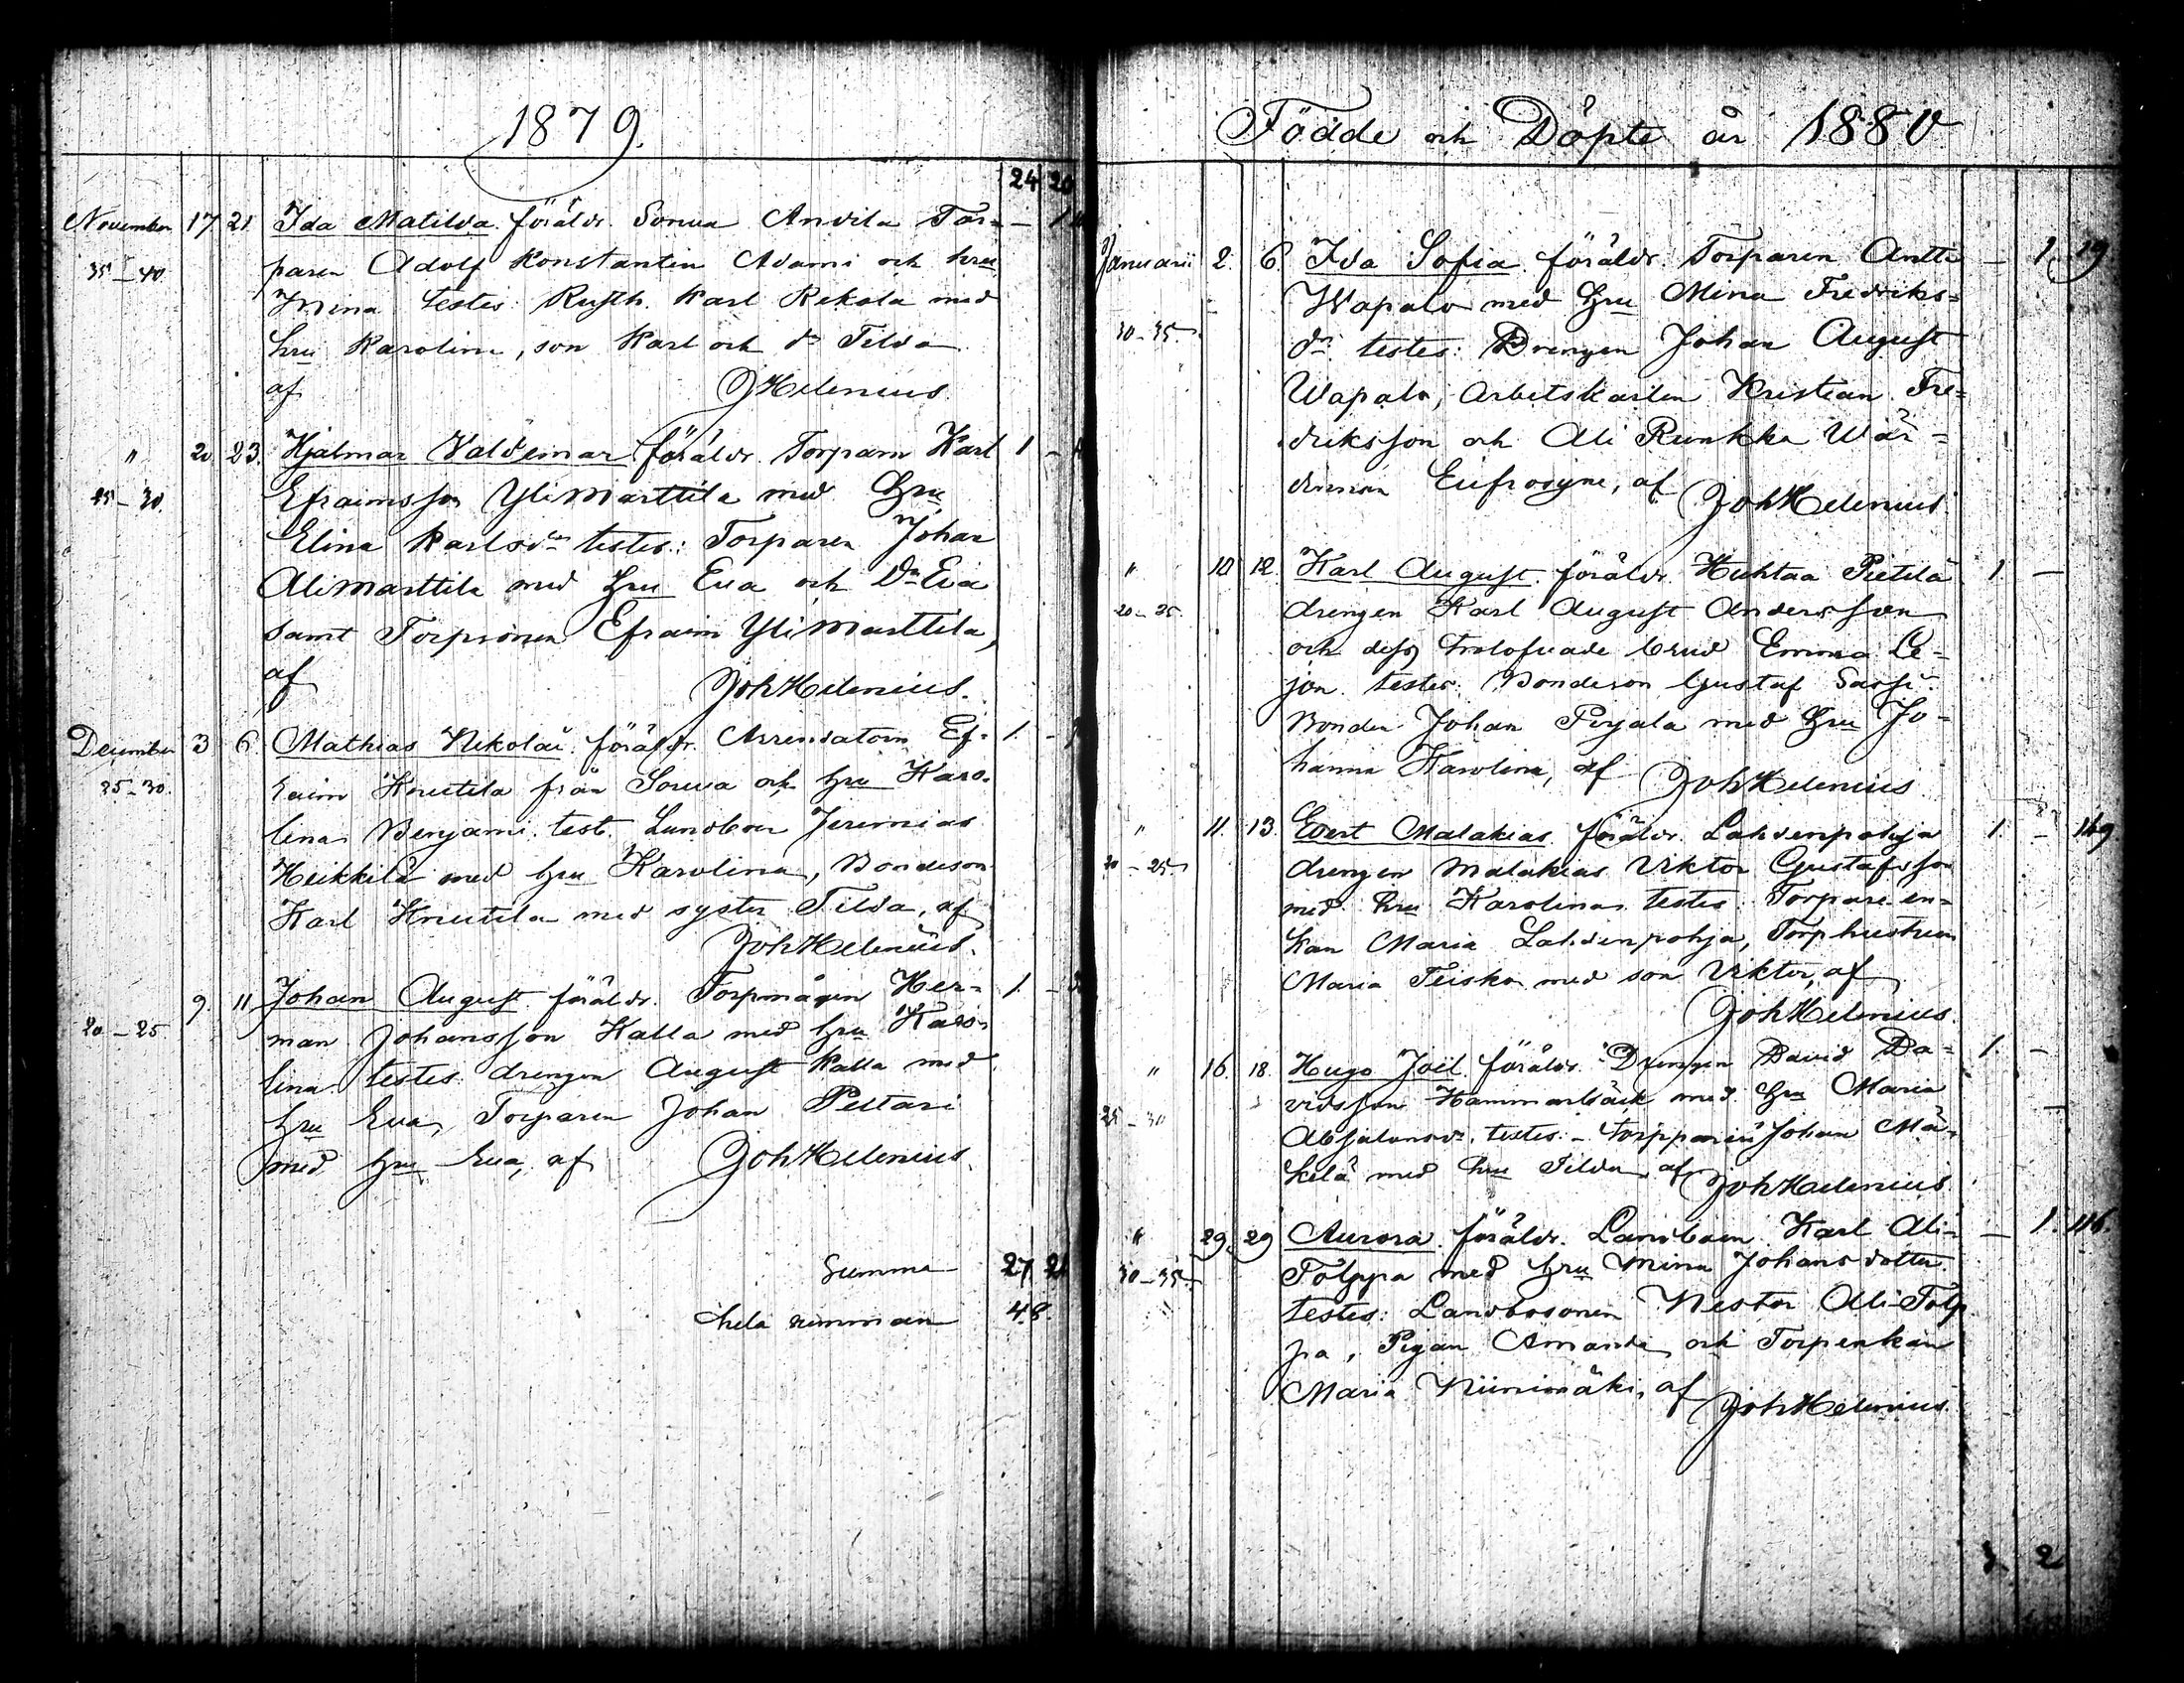 1879.
24 20
November 17. 21. Ida Matilda. föräldr. Sorwa Andila Tor= — 1
35-40 paren Adolf Konstantin Adami och hru
Mina testes: Rusth. Karl Rekola med
hru Karolina, son Karl och dr Tilda
af JHelenius.
" 20. 23. Hjalmar Valdemar föräldr. Torparen Karl 1 -
25-30. Efraimsson Ylimarttila med Hru
Elina Karlsdr testes: Torparen Johan
Alimarttila med Hru Eva och Dr Eva
samt Torpsonen Efraim Ylimarttila,
af JohHelenius.
December 3 6. Mathias Nikolai. föräldr. Arrendatorn Ef= 1. -
25-30. raim Knuutila från Sorwa och hru Karo-
lina Benjami. test. Landbon Jeremias
Heikkilä med hru Karolina, Bondeson
Karl Knuutila med syster Tilda, af
JohHelenius.
9. 11. Johan August föräldr. Torpmågen Her= 1. -
20-25. man Johansson Kalla med hru Karo-
lina. testes drengen August Kalla med
hru Eva, Torparen Johan Peltari
med hru Eva, af JohHelenius.
Summa 27 21
hela summan 48.
Födde och Döpte år 1880
Januarii 2. 6. Ida Sofia. föräldr. Torparen Antti — 1. 19
Wapalo med Hru Mina Fredriks=
30-35. dr. testes: Drengen Johan August
Wapalo, Arbetskarlen Kristian Fre=
driksson och Ali Runkka Wär=
dinnan Eufrosyne, af JohHelenius.
" 10 12. Karl August. föräldr. Huhtaa Pietilä 1. —
20-25. drengen Karl August Andersson
och dess trolofvade brud Emma Le=
jon. testes: Bondeson Gustaf Sassi.
Bonden Johan Perjala med Hru Jo=
hanna Karolina, af JohHelenius
" 11. 13. Evert Malakias. föräldr. Lahdenpohja 1. - 149
20-25. drengen Malakias Viktor Gustafsson
med hru Karolina. testes: Torpare en=
kan Maria Lahdenpohja, Torphustrun
Maria Teisko med son Viktor, af
JohHelenius.
" 16. 18. Hugo Joel. föräldr. Drengen David Da= 1. —
25-30 vidsson Hammarbäck med Hru Maria
Absalonsdr. testes.- torpparen Johan Mä=
kelä med hru Tilda af JohHelenius.
" 29. 29 Aurora. föräldr. Landbon Karl Ali- — 1. 116.
30-35. Tolppa med hru Mina Johansdotter.
testes: Landbosonen Nestor Ali-Tolp
pa, Pigan Amanda och Torpenkan
Maria Niinimäki, af JohHelenius.
3. 2